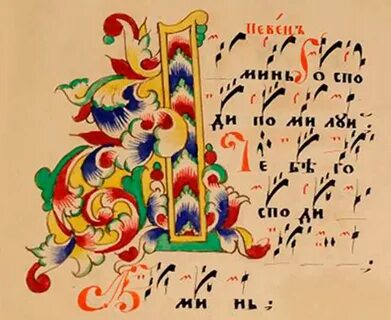 Певецъ
А минь Го спо
ди по ми луи:
Те бѣ го
спо ди:
А ми нь: